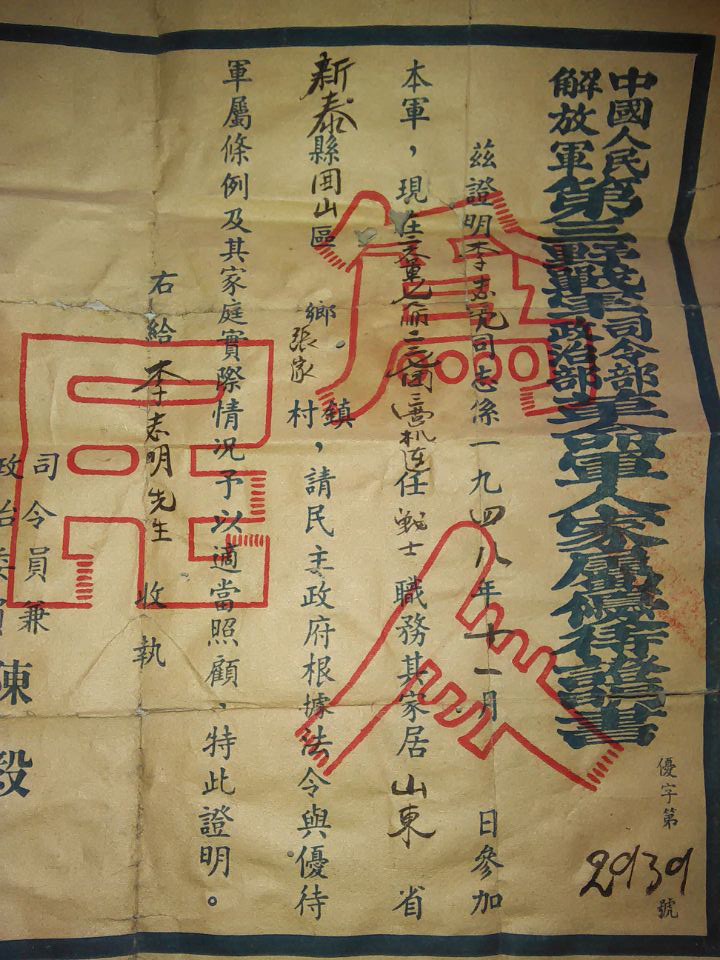 中國人民解放軍第三野戰軍司令部政治部革命軍人家屬優待證明書
優字第2939號
茲證明李志亮同志系一九四八年十一月 日參加
本軍,現在 二 團三營机連任戰士職務其家居山東省
新泰縣 山區 鄉鎮張家村,請民主政府根據法令與優待
軍屬條例及其家庭實際情況予以適當照顧,特此證明。
右給李志明先生 收執
司令員兼
政治委員 陳毅
為
人
民